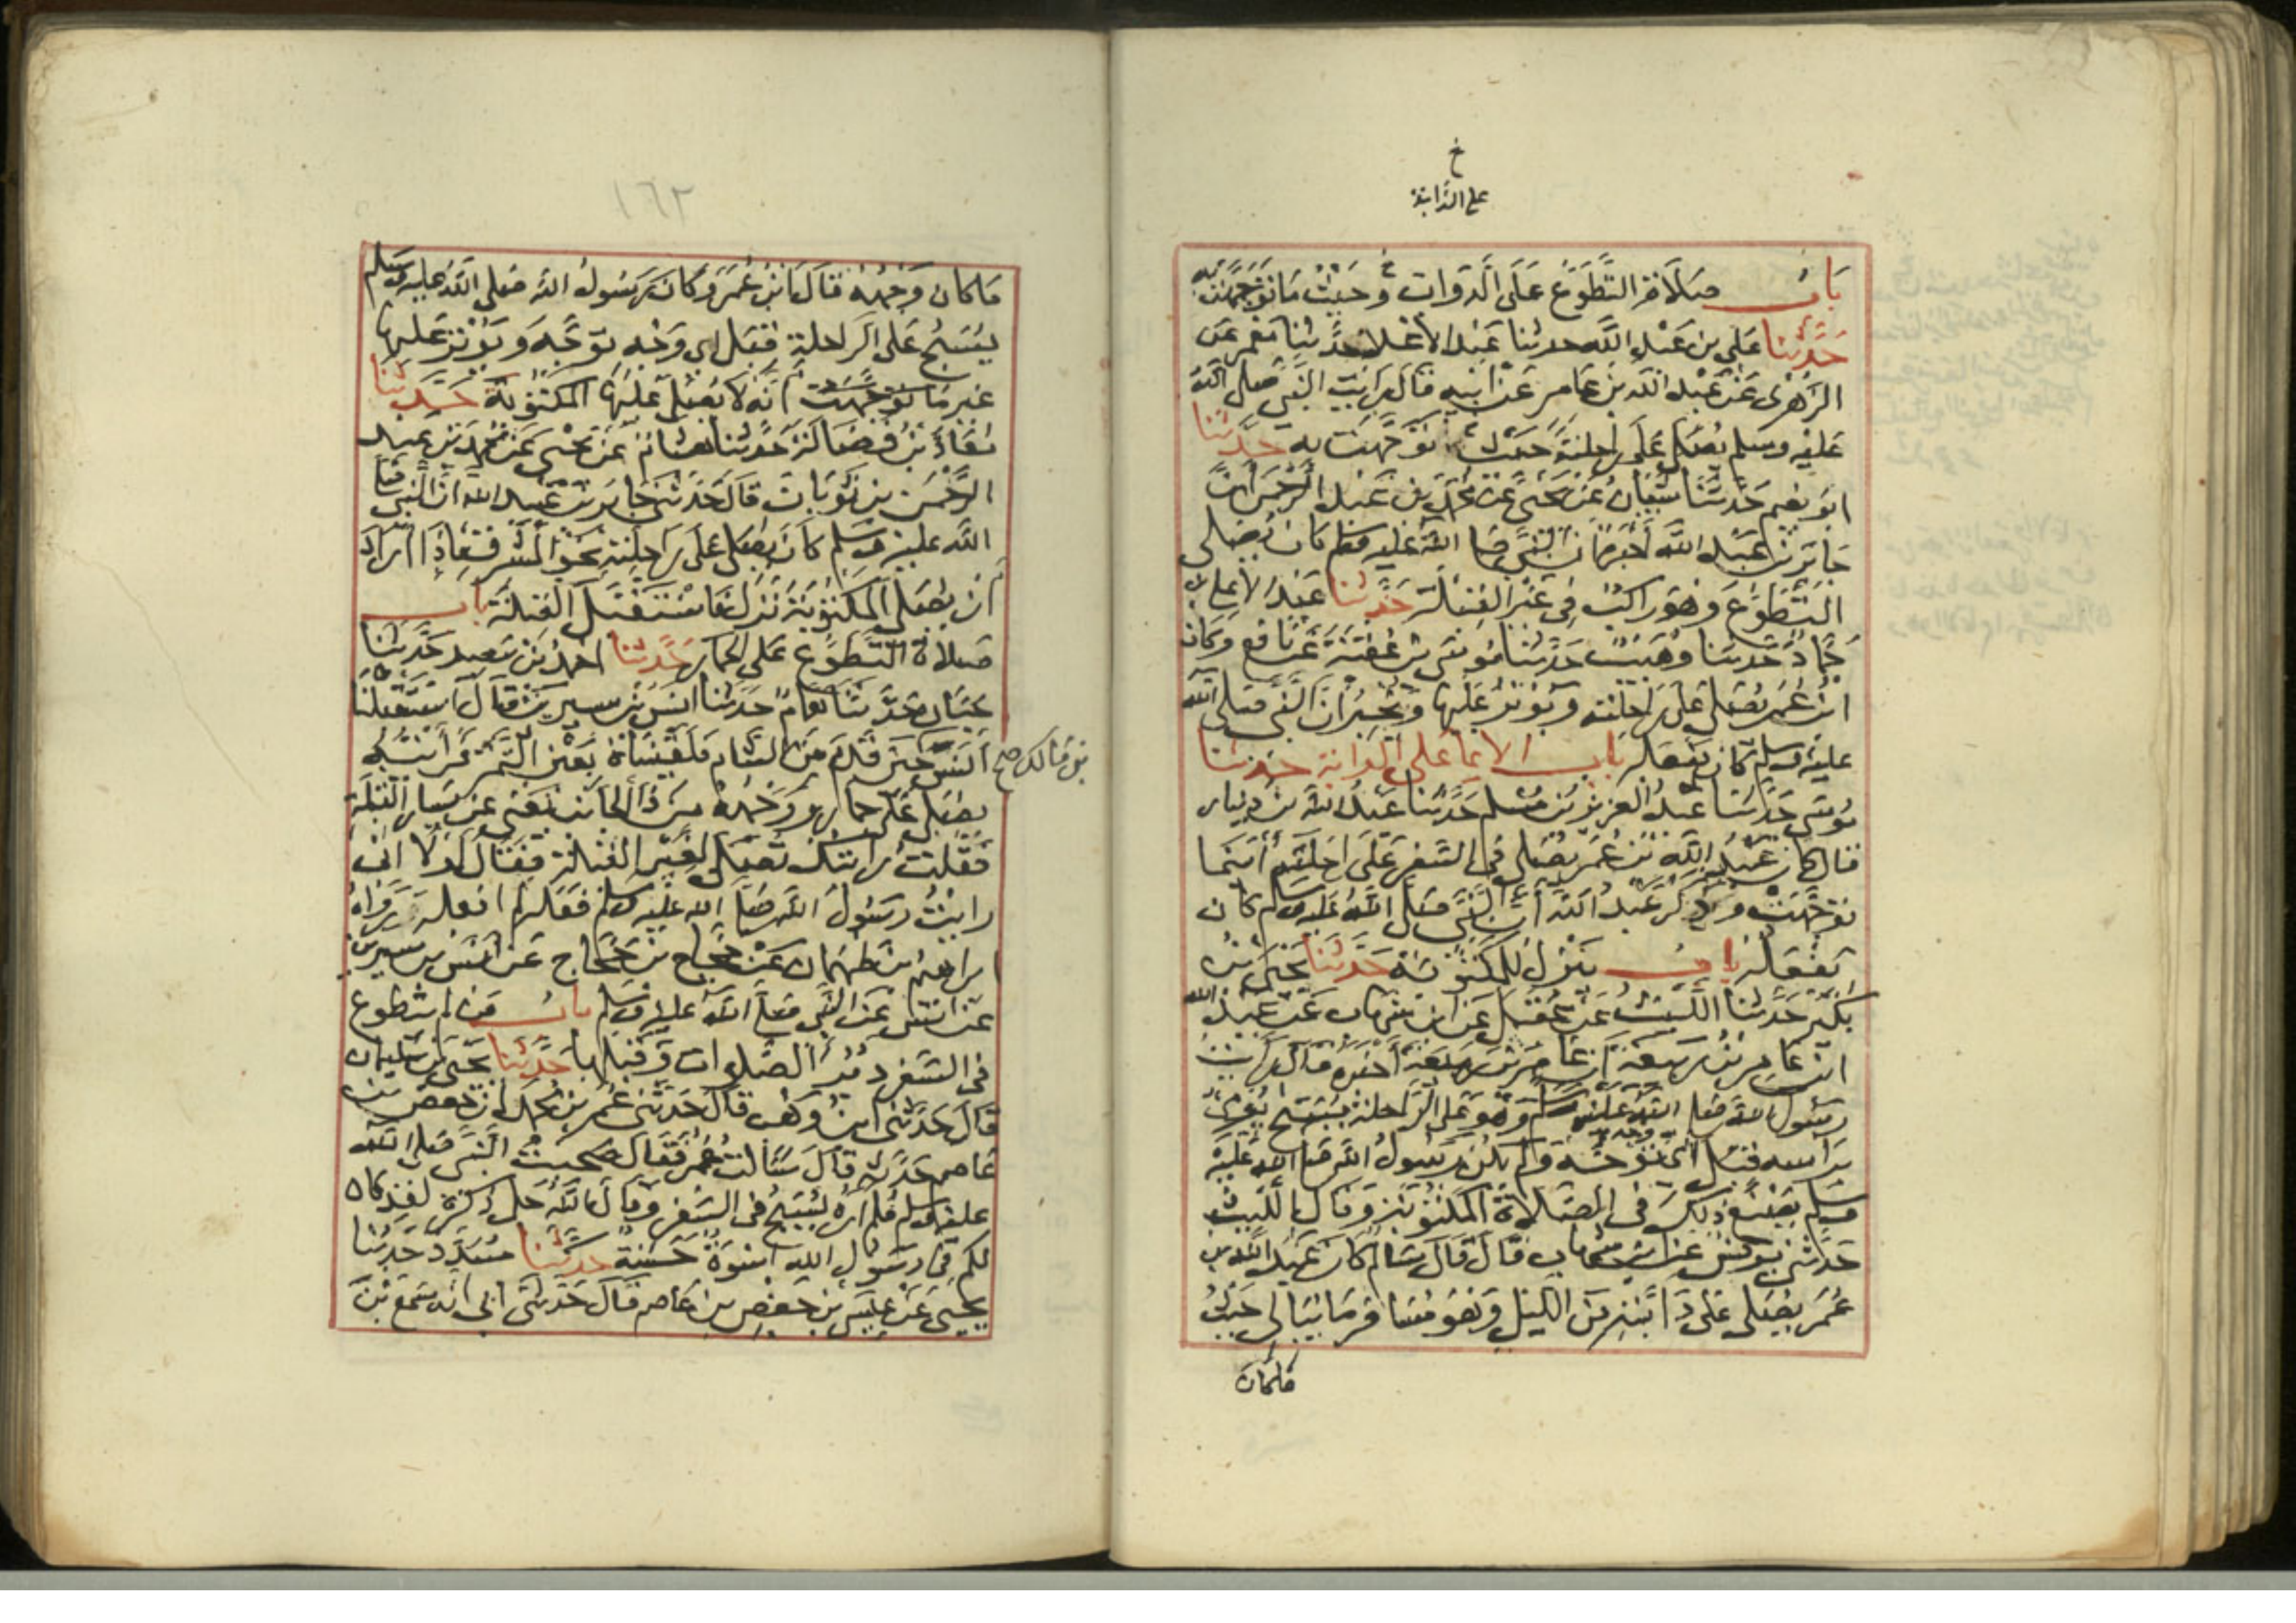 خ
على الدابة
باب صلاة التطوع على الدواب وحيث ما توجهت به
حدثنا علي بن عبد الله حدثنا عبد الاعلا حدثنا معمر عن
الزهرى عن عبد الله بن عامر عن ابيه قال رايت النبي صلى الله
عليه وسلم يصلى على راحلته حيث توجهت به حدثنا
ابو نعيم حدثنا شيبان عن يحيى عن محمد بن عبد الرحمن ان
جابر بن عبد الله اخبره ان النبي صلى الله عليه وسلم كان يصلى
التطوع وهو راكب في غير القبلة حدثنا عبد الاعلى بن
حماد حدثنا وهيب حدثنا موسى بن عقبة عن نافع وكان
ابن عمر يصلى على راحلته ويوتر عليها ويخبر ان النبي صلى الله
عليه وسلم كان يفعله باب الايما على الدابة حدثنا
موسى حدثنا عبد العزيز بن مسلم حدثنا عبد الله بن دينار
قال كان عبد الله بن عمر يصلى في السفر على راحلته اينما
توجهت وذكر عبد الله ان النبي صلى الله عليه وسلم كان
يفعله باب ينزل للمكتوبة حدثنا يحيى بن
بكير حدثنا الليث عن عقيل عن ابن شهاب عن عبد الله
ابن عامر بن ربيعة ان عامر بن ربيعة اخبره قال رايت
رسول الله صلى الله عليه وسلم وهو على الراحلة يسبح يومئ
براسه قبل اي وجه توجه ولم يكن رسول الله صلى الله عليه
وسلم يصنع ذلك في الصلاة المكتوبة وقال الليث
حدثني يونس عن ابن شهاب قال قال سالم كان عبد الله بن
عمر يصلى على دابته من الليل وهو مسافر ما يبالى حيث
ما كان
١٦٢
ما كان وجهه قال ابن عمر وكان رسول الله صلى الله عليه وسلم
يسبح على الراحلة قبل اي وجه توجه ويوتر عليها
غير انه لا يصلى عليها المكتوبة حدثنا
معاذ بن فضالة حدثنا هشام عن يحيى عن محمد بن عبد
الرحمن بن ثوبان قال حدثني جابر بن عبد الله ان النبي صلى
الله عليه وسلم كان يصلى على راحلته نحو المشرق فاذا اراد
ان يصلى المكتوبة نزل فاستقبل القبلة باب
صلاة التطوع على الحمار حدثنا احمد بن سعيد حدثنا
حبان حدثنا همام حدثنا انس بن سيرين قال استقبلنا
انس حين قدم من الشام فلقيناه بعين التمر فرأيته
بن مالك صح
يصلى على حمار ووجهه من ذا الجانب يعني عن يسار القبلة
فقلت رايتك تصلى لغير القبلة فقال لولا اني
رايت رسول الله صلى الله عليه وسلم فعله لم افعله رواه
ابراهيم بن طهمان عن حجاج بن حجاج عن انس بن سيرين
عن انس عن النبي صلى الله عليه وسلم باب من لم يتطوع
في السفر دبر الصلوات وقبلها حدثنا يحيى بن سليمان
قال حدثني ابن وهب قال حدثني عمر بن محمد ان حفص بن
عاصم حدثه قال سالت ابن عمر فقال صحبت النبي صلى الله
عليه وسلم فلم اره يسبح في السفر وقال الله جل ذكره لقد كان
لكم في رسول الله اسوة حسنة حدثنا مسدد حدثنا
يحيى عن عيسى بن حفص بن عاصم قال حدثني ابي انه سمع بن